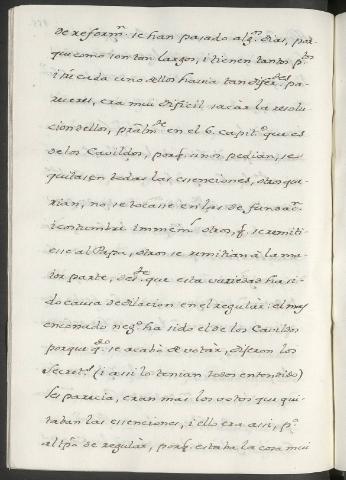 de reform.ⁿ se han pasado alg.ˢ dias, por-
que como son tan largos, i tienen tantos p.ᵗᵒˢ
i en cada uno dellos havia tan difer.ᵗᵉˢ pa-
receres, era mui dificil sacàr la resolu-
cion dellos, prãlm.ᵗᵉ en el 6. capit.º que es
de los Cavildos, porq̃ unos pedian, se
quitasen todas las essenciones, otros que-
rian, no se tocasse en las de fundac.ⁿ
i costumbre immem.ˡ otros, q̃ se remiti-
esse al Papa, otros se remitian à la ma-
ior parte, de que esta variedad ha si-
do causa de dilacion en el regulàr: el mas
enconado neg.º ha sido el de los Cavildos
porque q.ᵈᵒ se acabò de votàr, dijeron los
Secret.ˢ (i assi lo tenian todos entendido)
les parecia, eran mas los votos que qui-
taban las essenciones, i ello era assi, p.º
al tp̃o de regulàr, porq̃ estaba la cosa mui